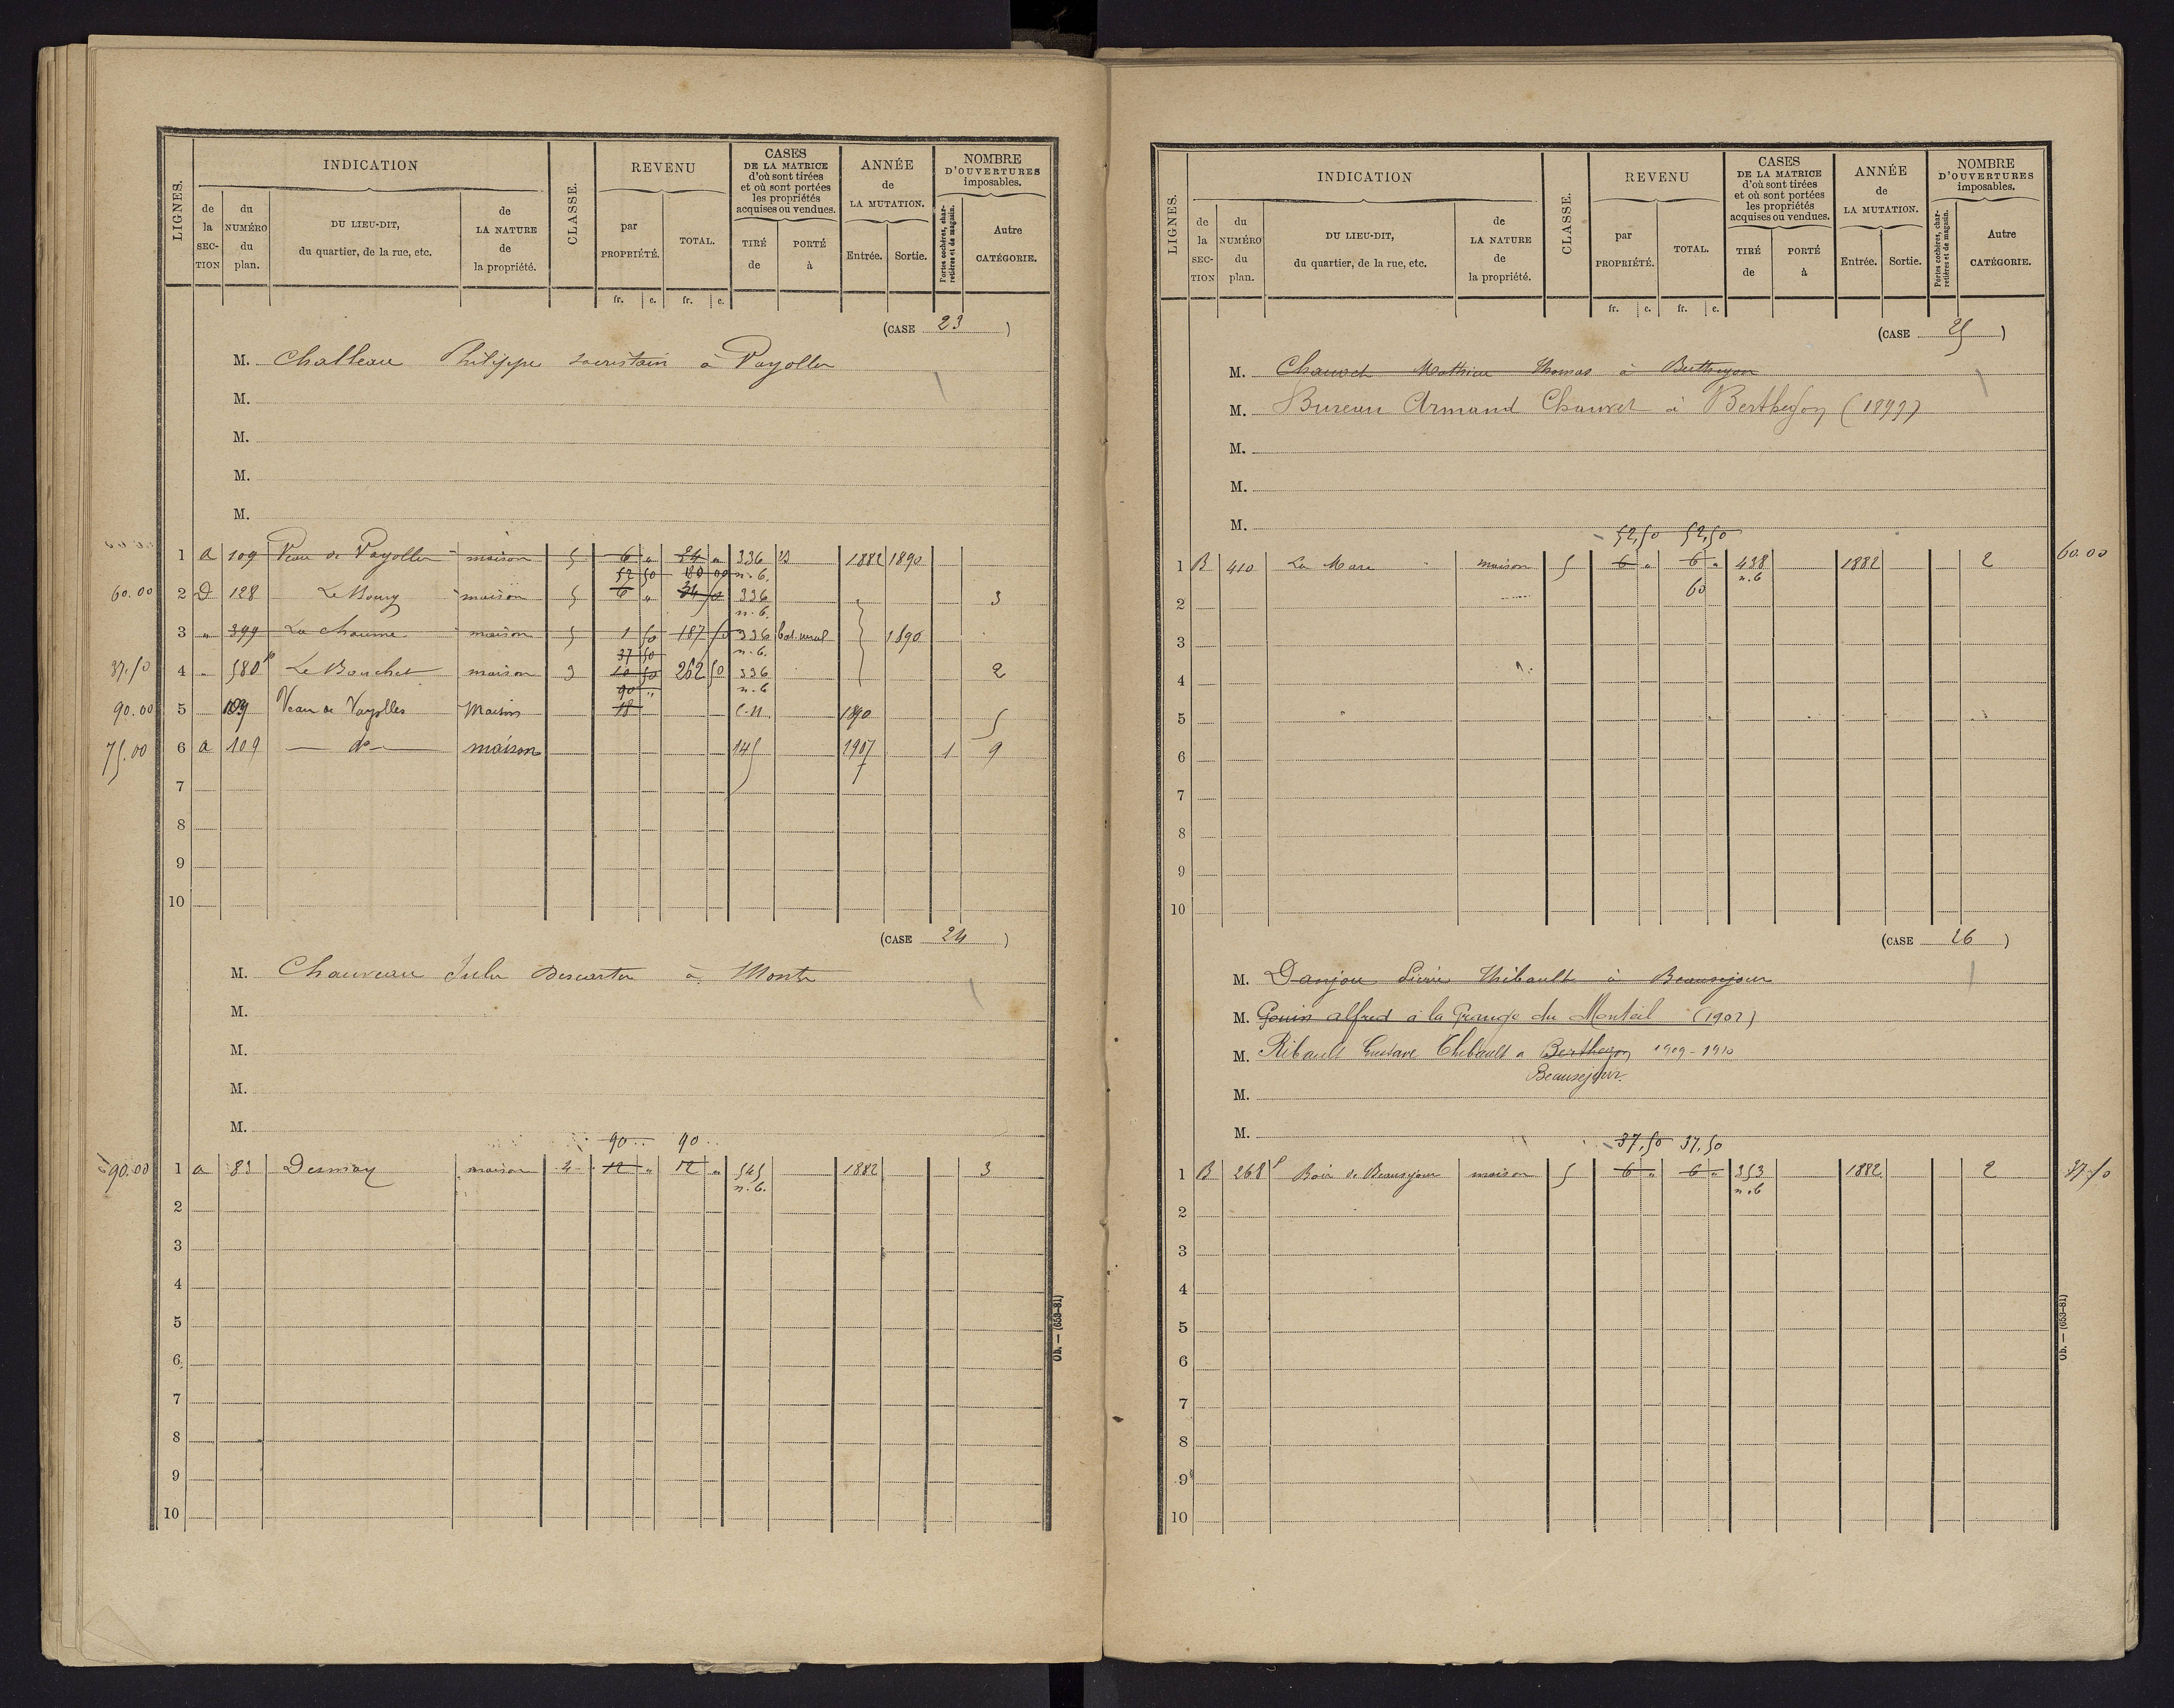 LIGNES.
INDICATION
de la SECTION
du NUMÉRO du plan.
DU LIEU-DIT, du quartier, de la rue, etc.
de LA NATURE de la propriété.
CLASSE.
REVENU
par PROPRIÉTÉ.
TOTAL.
CASES DE LA MATRICE d'où sont tirées et où sont portées les propriétés acquises ou vendues.
TIRÉ de
PORTÉ à
ANNÉE de LA MUTATION.
Entrée. Sortie.
NOMBRE D'OUVERTURES imposables.
Portes cochères, charretières et de magasin.
Autre CATÉGORIE.
fr. c. fr. c.
(CASE 23)
M. Philippe sacristain à
M.
M.
M.
M.
1 a 109 maison 5 6 " 24 " 336 1882 1890
52 50 n.b.
60.00 2 D 128 Le Bourg maison 5 6 " 336 " 3
n.b.
3 " 399 La Chaume maison 5 1 50 187 50 336 bat. rural 1890
37 50 n.b.
37.50 4 " 580p Le Bouchet maison 3 10 50 262 50 336 2
90 " n.b.
90.00 5 109 Maison 18 C.N. 1890 5
75.00 6 a 109 — do — maison 145 1907 1 9
7
8
9
10
(CASE 24)
M. Chauveau Jules Descartes à Monts
M.
M.
M.
M.
90 .. 90 ..
90.00 1 a 83 Desmay maison 4 12 " 12 " 545 1882 3
n.b.
2
3
4
5
6
7
8
9
10
Ob. — (653-81)
LIGNES.
INDICATION
de la SECTION
du NUMÉRO du plan.
DU LIEU-DIT, du quartier, de la rue, etc.
de LA NATURE de la propriété.
CLASSE.
REVENU
par PROPRIÉTÉ.
TOTAL.
CASES DE LA MATRICE d'où sont tirées et où sont portées les propriétés acquises ou vendues.
TIRÉ de
PORTÉ à
ANNÉE de LA MUTATION.
Entrée. Sortie.
NOMBRE D'OUVERTURES imposables.
Portes cochères, charretières et de magasin.
Autre CATÉGORIE.
fr. c. fr. c.
(CASE 25)
M. Mathieu Thomas à
M. Bureau Armand Chauvet à Berthegon (1899)
M.
M.
M.
52,50 52,50
1 B 410 La Mare maison 5 6 " 6 " 438 1882 2 60.00
60 n.b
2
3
4
5
6
7
8
9
10
(CASE 26)
M. Danjou Thibault à Beausejour
M. Gouin alfred à la Grange du Monteil (1902)
M. Ribault Gustave Thibault a Berthegon 1909-1910
Beausejour.
M.
M.
37,50 37,50
1 B 268p Bois de Beausejour maison 5 6 " 6 " 353 1882 2 37.50
n.b
2
3
4
5
6
7
8
9
10
Ob. — (653-81)